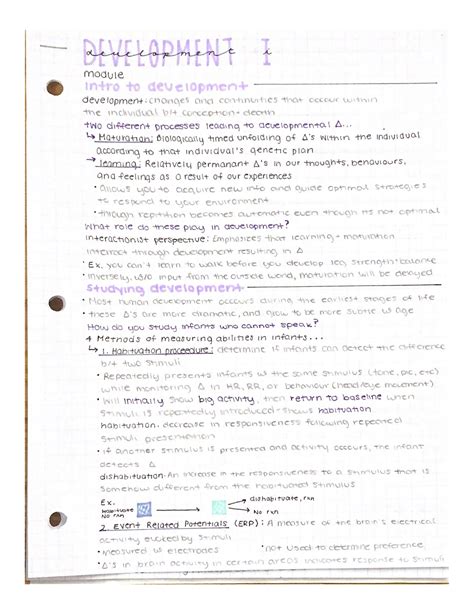 DEVELOPMENT I
development
module
Intro to development
development: changes and continuities that occur within
the individual b/t conception + death
two different processes leading to developmental Δ...
↳ Maturation: Biologically timed unfolding of Δ's within the individual
according to that individual's genetic plan
↳ learning: Relatively permanant Δ's in our thoughts, behaviours,
and feelings as a result of our experiences
• allows you to acquire new info and guide optimal strategies
to respond to your environment
• through repition becomes automatic even though its not optimal
What role do these play in development?
interactionist perspective: Emphasizes that learning + maturation
interact through development resulting in Δ
• Ex. you can't learn to walk before you develop leg strength + balance
• inversely, w/o input from the outside world, maturation will be delayed
Studying development
• Most human development occurs during the earliest stages of life
• these Δ's are more dramatic, and grow to be more subtle w age
How do you study infants who cannot speak?
4 Methods of measuring abilities in infants...
↳ 1. Habituation procedure: determine if infants can detect the difference
b/t two stimuli
• Repeatedly presents infants w the same stimulus (tone, pic, etc)
while monitoring Δ in HR, RR, or behaviour (head/eye movement)
• Will initially show big activity, then return to baseline when
stimuli is repeatedly introduced → shows habituation
habituation: decrease in responsiveness following repeated
stimuli presentation
• if another stimulus is presented and activity occurs, the infant
detects Δ
dishabituation: An increase in the responsiveness to a stimulus that is
somehow different from the habituated stimulus
Ex.
→ dishabituate, rxn
Habituate
No rxn
→ No rxn
2. Event Related Potentials (ERP): A measure of the brain's electrical
activity evoked by stimuli
• measured w electrodes • not used to determine preference
• Δ's in brain activity in certain areas indicates response to stimuli